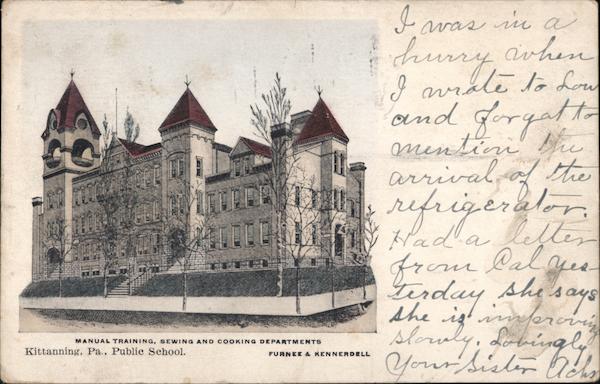 I was in a
hurry when
I wrote to Lou
and forgot to
mention the
arrival of the
refrigerator.
Had a letter
from Cal yes-
terday she says
she is improving
slowly. Lovingly
Your Sister
MANUAL TRAINING, SEWING AND COOKING DEPARTMENTS
Kittanning, Pa., Public School. FURNEE & KENNERDELL